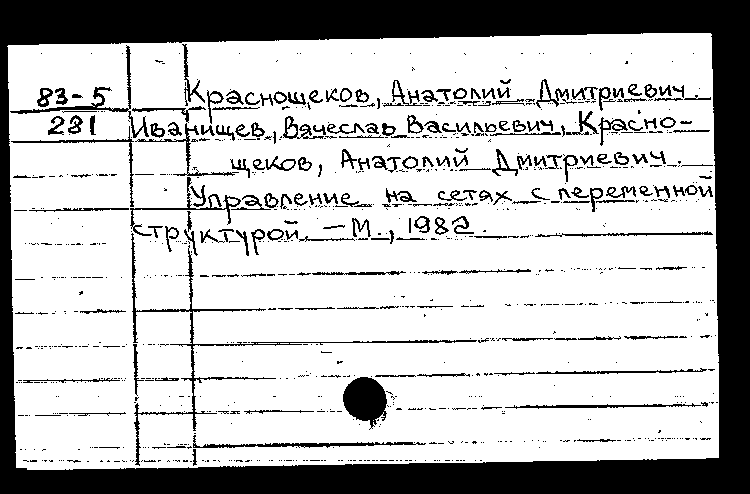 83-5 Краснощеков, Анатолий Дмитриевич.
281 Иванищев, Вячеслав Васильевич, Красно-
щеков, Анатолий Дмитриевич.
Управление на сетях с переменной
структурой. – М., 1982.